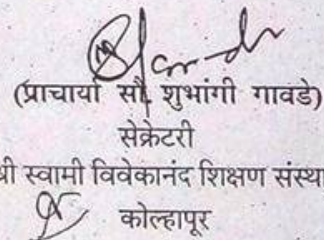 (प्राचार्या सौ. शुभांगी गावडे)
सेक्रेटरी
श्री स्वामी विवेकानंद शिक्षण संस्था
कोल्हापूर